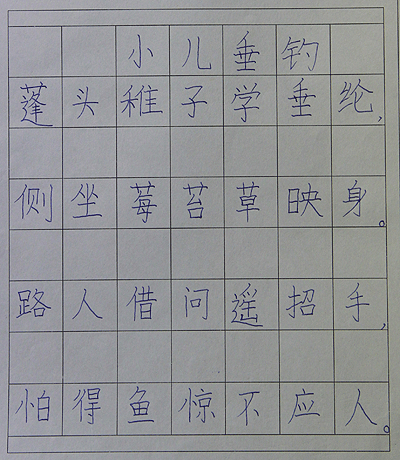 小儿垂钓
蓬头稚子学垂纶,
侧坐莓苔草映身。
路人借问遥招手,
怕得鱼惊不应人。